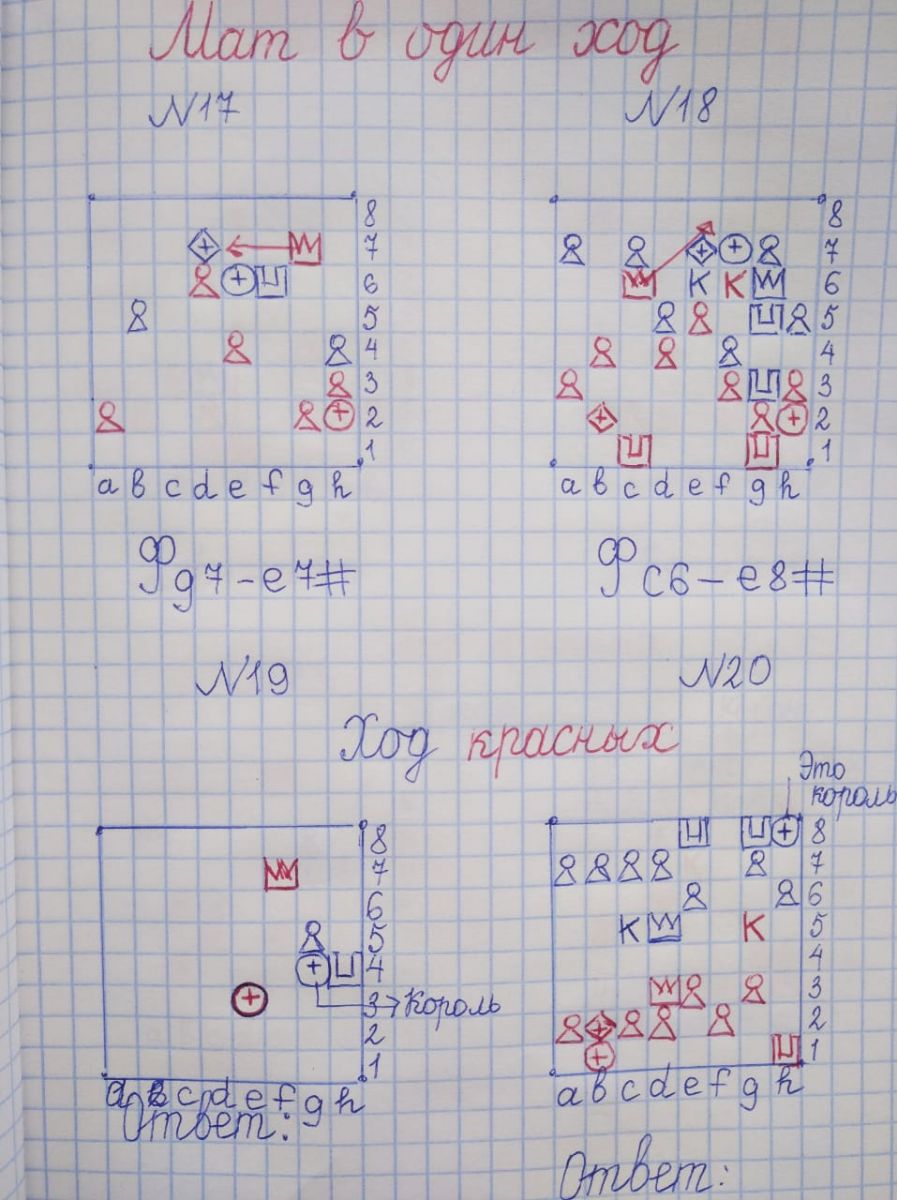 Мат в один ход
N17
N18
8
7
6
5
4
3
2
1
a b c d e f g h
8
7
K K 6
5
4
3
2
1
a b c d e f g h
Фg7-e7#
Фc6-e8#
N19
N20
Ход красных
Это
король
8
7
6
5
4
3 Король
2
1
a b c d e f g h
Ответ:
8
7
6
K K 5
4
3
2
1
a b c d e f g h
Ответ: